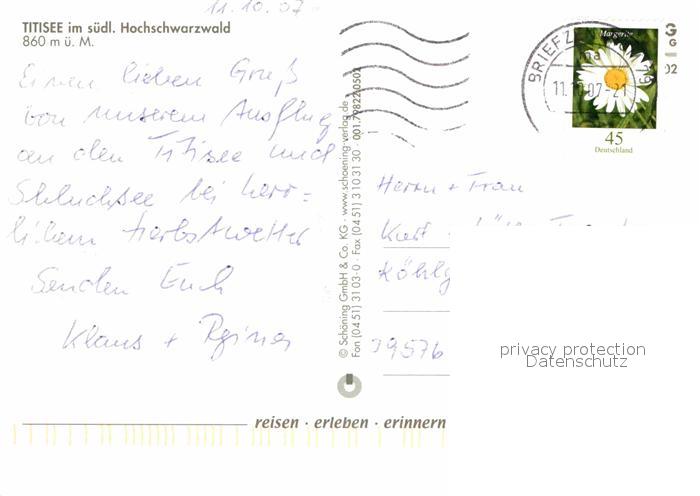 11.10.07
TITISEE im südl. Hochschwarzwald
860 m ü. M.
Einen lieben Gruß
von unserem Ausflug
an den Titisee und
Schluchsee bei herr=
lichem Herbstwetter
Senden Euch
Klaus + Regina
© Schöning GmbH & Co. KG · www.schoening-verlag.de
Fon (04 51) 3 10 3-0 · Fax (04 51) 3 10 31 30 · 001.79822 0502
BRIEFZ
11.10.07-21
Margerite
45
Deutschland
G
G
02
Herrn + Frau
Kurt
39576
privacy protection
Datenschutz
reisen · erleben · erinnern